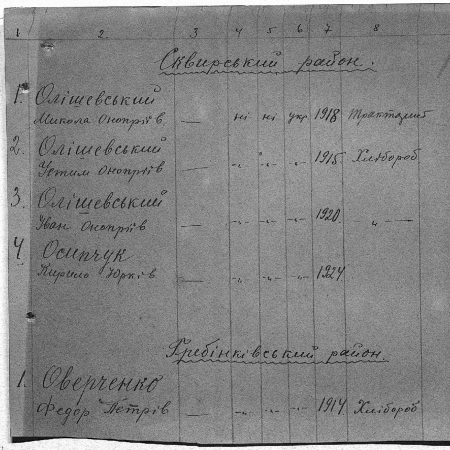 1 2. 3 4 5 6 7 8
Сквирський район.
1. Олішевський
Микола Онопріїв — ні ні укр 1918 Тракторист
2. Олішевський
Устим Онопріїв — -„- -„- -„- 1915 Хлібороб
3. Олішевський
Іван Онопріїв — -„- -„- -„- 1920 -„-
4 Осипчук
Кирило Юрків — -„- -„- -„- 1924
Гребінківський район.
1. Оверченко
Федор Петрів — -„- -„- -„- 1914 Хлібороб